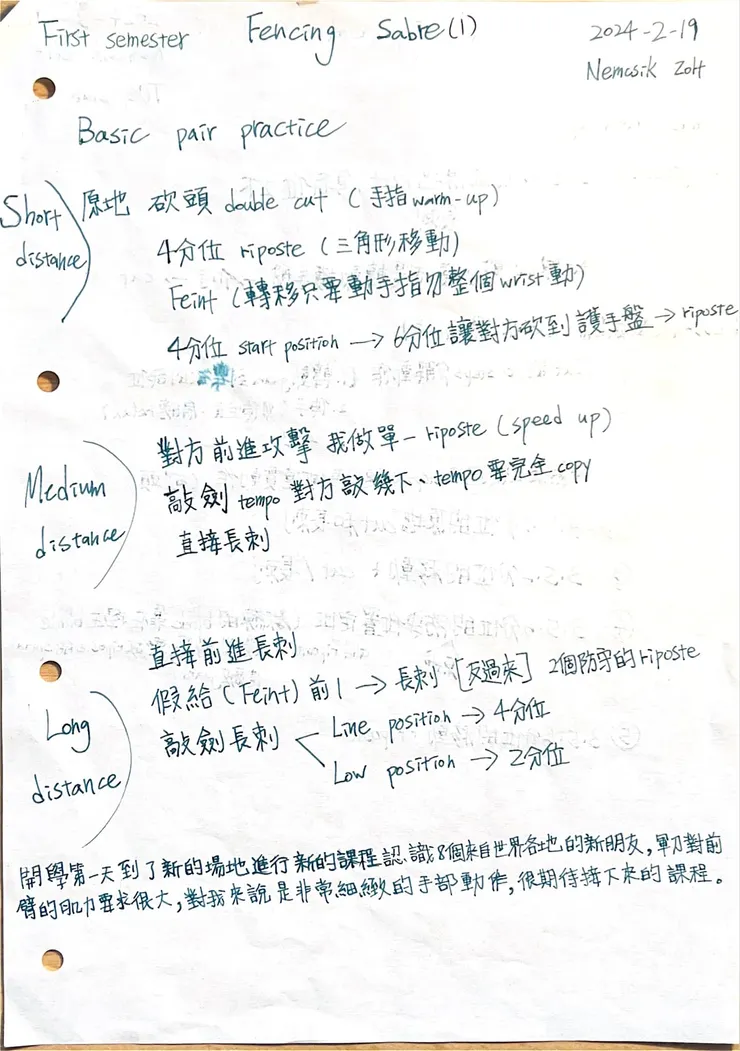 First semester Fencing Sabre (1) 2024-2-19
Nemcsik Zolt
Basic pair practice
Short distance
原地 砍頭 double cut (手指 warm-up)
4分位 riposte (三角形移動)
Feint (轉移只要動手指勿整個wrist動)
4分位 start position → 6分位讓對方砍到護手盤 → riposte
Medium distance
對方前進攻擊 我做單一riposte (speed up)
敲劍 tempo 對方敲幾下、tempo要完全copy
直接長刺
Long distance
直接前進長刺
假給(Feint)前1 → 長刺 [反過來] 2個防守的riposte
敲劍長刺
Line position → 4分位
Low position → 2分位
開學第一天到了新的場地進行新的課程認識8個來自世界各地的新朋友,軍刀對前
臂的肌力要求很大,對我來說是非常細緻的手部動作,很期待接下來的課程。